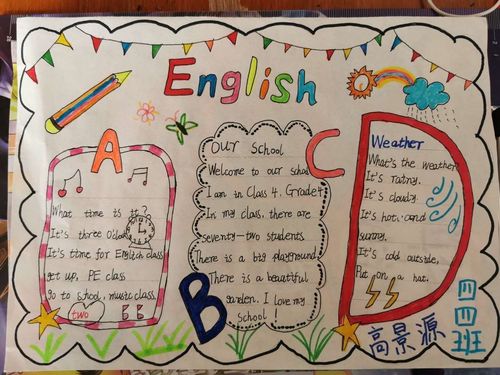 English
A
What time is it?
It's three O'clock
It's time for English class
get up, PE class
Go to school, music class.
two
Our School
Welcome to our school
I am in Class 4, Grade 4
In my class, there are
seventy-two students
There is a big playground
There is a beautiful
garden. I love my
school!
B
C
Weather
What's the weather
It's rainy.
It's cloudy
It's hot, and
sunny.
It's cold outside,
Put on a hat.
高景源
四
四
班